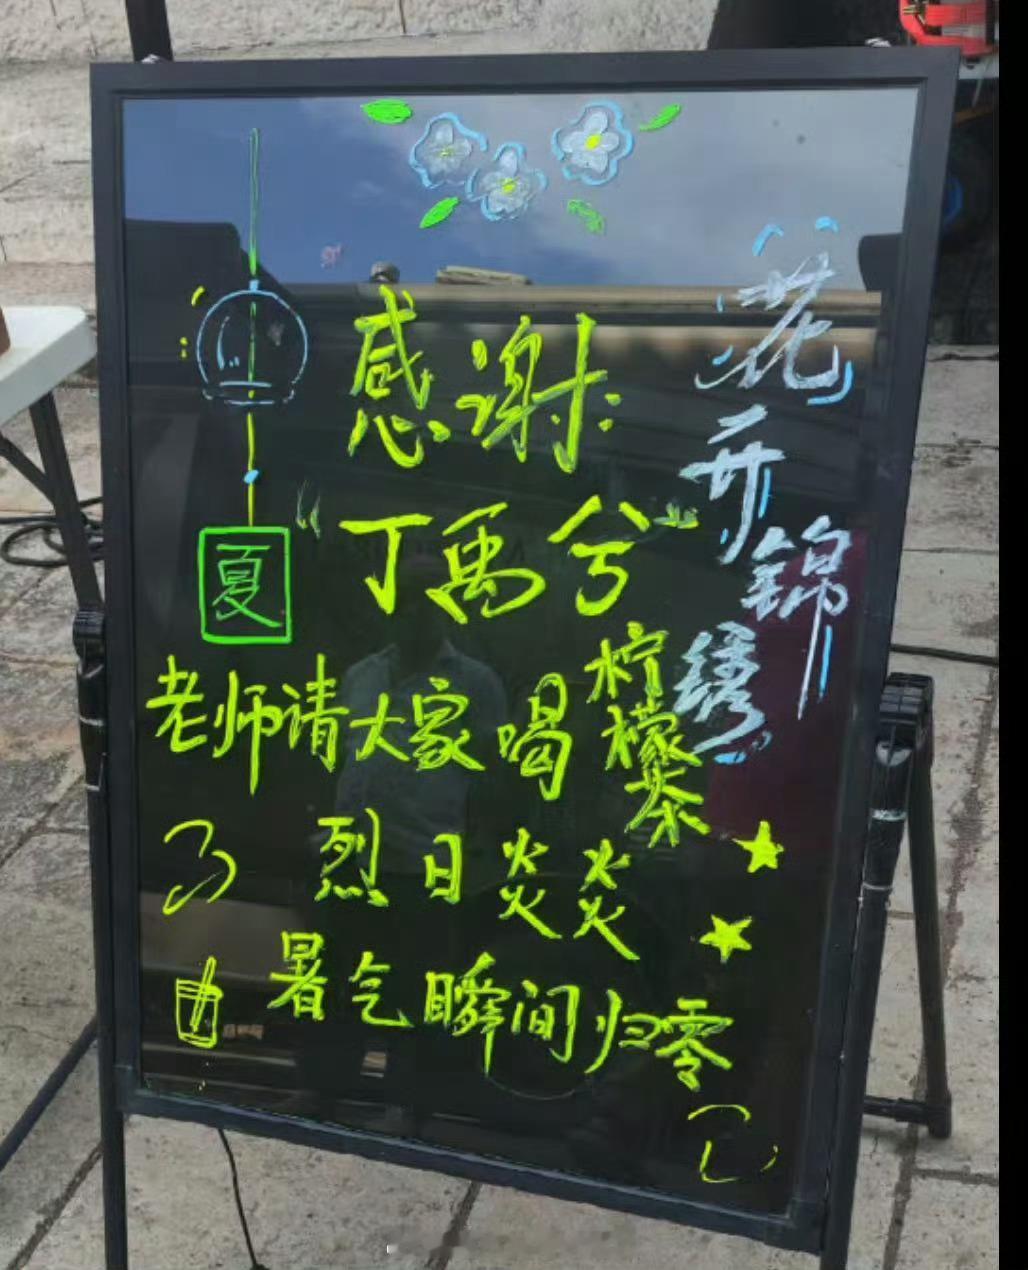 感谢:
“丁禹兮”
夏
老师请大家喝柠檬茶
烈日炎炎
暑气瞬间归零
花开锦绣